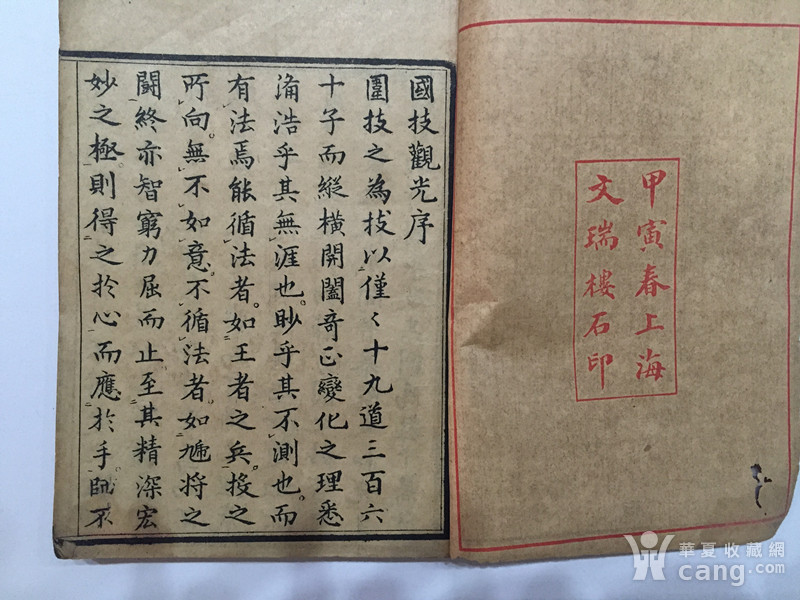 甲寅春上海
文瑞樓石印
國技觀光序
圍技之為技以僅〻十九道三百六
十子而縱橫開闔奇正變化之理悉
備浩乎其無涯也眇乎其不測也而
有法焉能循法者如王者之兵投之
所向無不如意不循法者如
將之
鬭終亦智窮力屈而止至其精深宏
妙之極則得之於心而應於手
不
華夏收藏網
cang.com